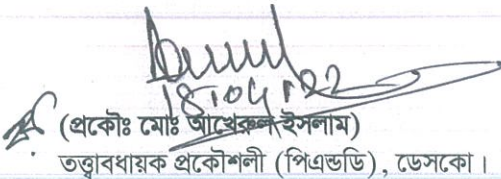 18.04.22
(প্রকৌঃ মোঃ আখেরুল ইসলাম)
তত্ত্বাবধায়ক প্রকৌশলী (পিএন্ডডি), ডেসকো।